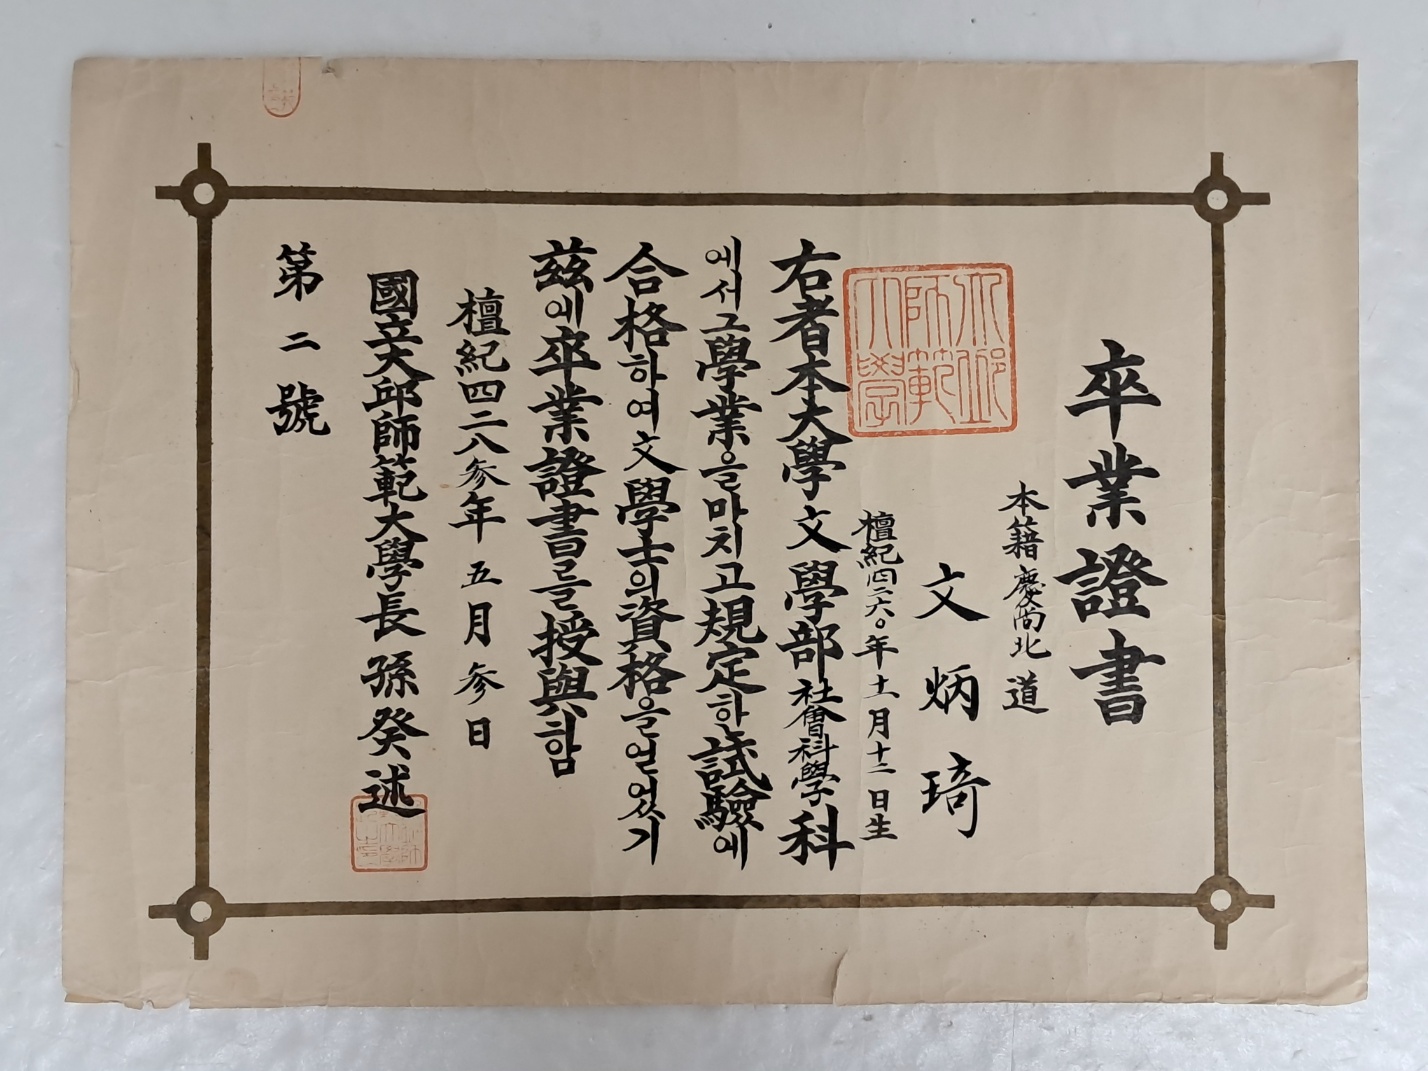 卒業證書
本籍 慶尙北道
文炳琦
檀紀四二六〇年十一月十二日生
大邱師範大學
右者本大學文學部社會科學科
에서그學業을마치고規定한試驗에
合格하여文學士의資格을얻었기
玆에卒業證書를授與함
檀紀四二八參年 五月 參日
國立大邱師範大學長 孫癸述
第二號